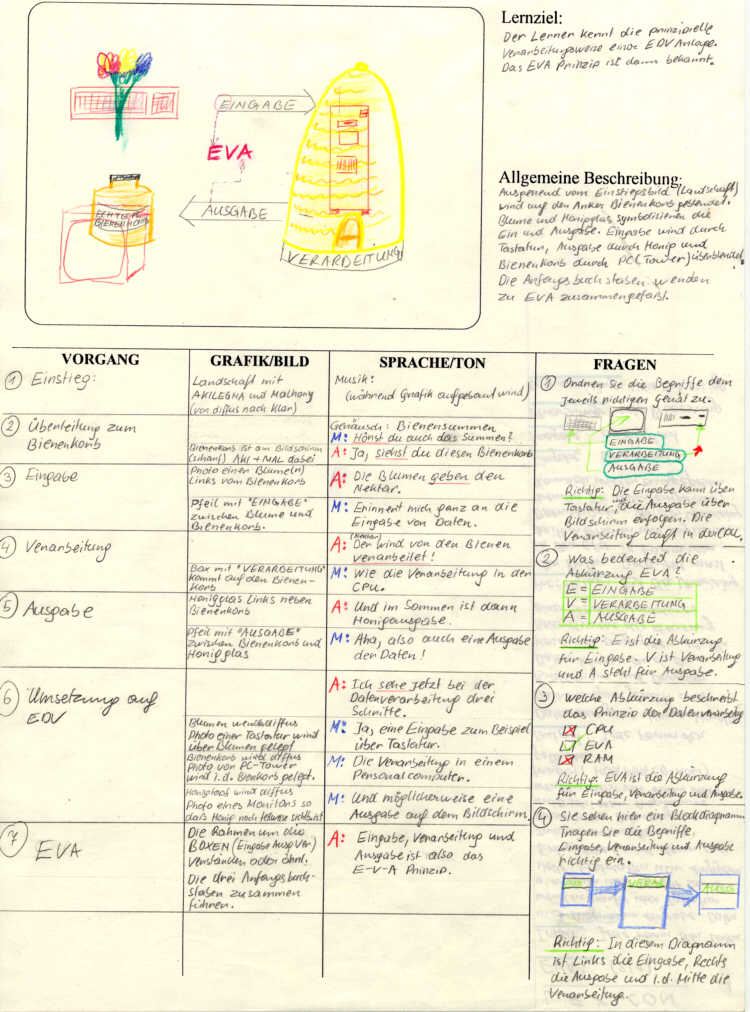 EINGABE
EVA
AUSGABE
BIENENHONIG
VERARBEITUNG
Lernziel:
Der Lerner kennt die prinzipielle
Verarbeitungsweise einer EDV Anlage.
Das EVA Prinzip ist dann bekannt.
Allgemeine Beschreibung:
Ausgehend vom Einstiegsbild (Landschaft)
wird auf den Anker Bienenkorb
Blume und Honigglas symbolisieren die
Ein und Ausgabe. Eingabe wird durch
Tastatur, Ausgabe durch Honig und
Bienenkorb durch PC (Tower) überblendet
Die Anfangsbuchstaben werden
zu EVA zusammengefasst.
VORGANG
GRAFIK/BILD
SPRACHE/TON
FRAGEN
1 Einstieg:
Landschaft mit
AKILEGNA und Malhony
(von diffus nach klar)
Musik:
(während Grafik aufgebaut wird)
2 Überleitung zum
Bienenkorb
Bienenkorb ist am Bildschirm
(scharf) AKI + MAL dabei
Geräusch: Bienensummen
M: Hörst du auch das Summen?
A: Ja, siehst du diesen Bienenkorb
3 Eingabe
Photo einer Blume(n)
Links vom Bienenkorb
Pfeil mit "EINGABE"
zwischen Blume und
Bienenkorb.
A: Die Blumen geben den
Nektar.
M: Erinnert mich ganz an die
Eingabe von Daten.
4 Verarbeitung
Box mit "VERARBEITUNG"
kommt auf den Bienen-
korb
A: Der wird von den Bienen
verarbeitet!
M: Wie die Verarbeitung in der
CPU.
5 Ausgabe
Honigglas Links neben
Bienenkorb
Pfeil mit "AUSGABE"
zwischen Bienenkorb und
Honigglas
A: Und im Sommer ist dann
Honigausgabe.
M: Aha, also auch eine Ausgabe
der Daten!
6 Umsetzung auf
EDV
Blumen werden diffus
Photo einer Tastatur wird
über Blumen gelegt
Bienenkorb wird diffus
Photo von PC-Tower
wird i.d. Bienkorb gelegt.
Honigtopf wird diffus
Photo eines Monitors so
daß Honig noch teilweise sichtb. ist
A: Ich sehe jetzt bei der
Datenverarbeitung drei
Schritte.
M: Ja, eine Eingabe zum Beispiel
über Tastatur.
M: Die Verarbeitung in einem
Personalcomputer.
M: Und möglicherweise eine
Ausgabe auf dem Bildschirm.
7 EVA
Die Rahmen um die
BOXEN (Eingabe Ausg Ver)
verstärken oder ähnl.
Die drei Anfangsbuch-
staben zusammen
führen.
A: Eingabe, Verarbeitung und
Ausgabe ist also das
E-V-A Prinzip.
1 Ordnen Sie die Begriffe dem
jeweils richtigen Gerät zu.
EINGABE
VERARBEITUNG
AUSGABE
Richtig: Die Eingabe kann über
Tastatur, und die Ausgabe über
Bildschirm erfolgen. Die
Verarbeitung läuft in der CPU.
2 Was bedeuted die
Abkürzung EVA?
E = EINGABE
V = VERARBEITUNG
A = AUSGABE
Richtig: E ist die Abkürzung
für Eingabe. V ist Verarbeitung
und A steht für Ausgabe.
3 Welche Abkürzung beschreibt
das Prinzip der Datenverarbeitg
CPU
EVA
RAM
Richtig: EVA ist die Abkürzung
für Eingabe, Verarbeitung und Ausgabe.
4 Sie sehen hier ein Blockdiagramm
Tragen Sie die Begriffe.
Eingabe, Verarbeitung und Ausgabe
richtig ein.
VERAR
Richtig: In diesem Diagramm
ist Links die Eingabe, Rechts
die Ausgabe und i.d. Mitte die
Verarbeitung.